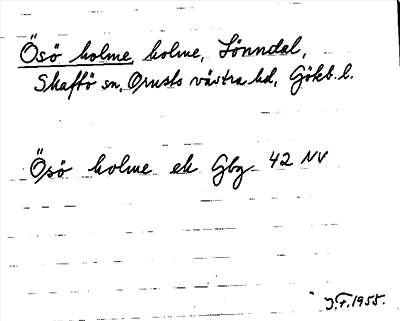 Ösö holme, holme, Lönndal,
Skaftö sn, Orusts västra hd, Götkb. l.
Ösö holme ek Gbg 42 NV
J.F. 1955.